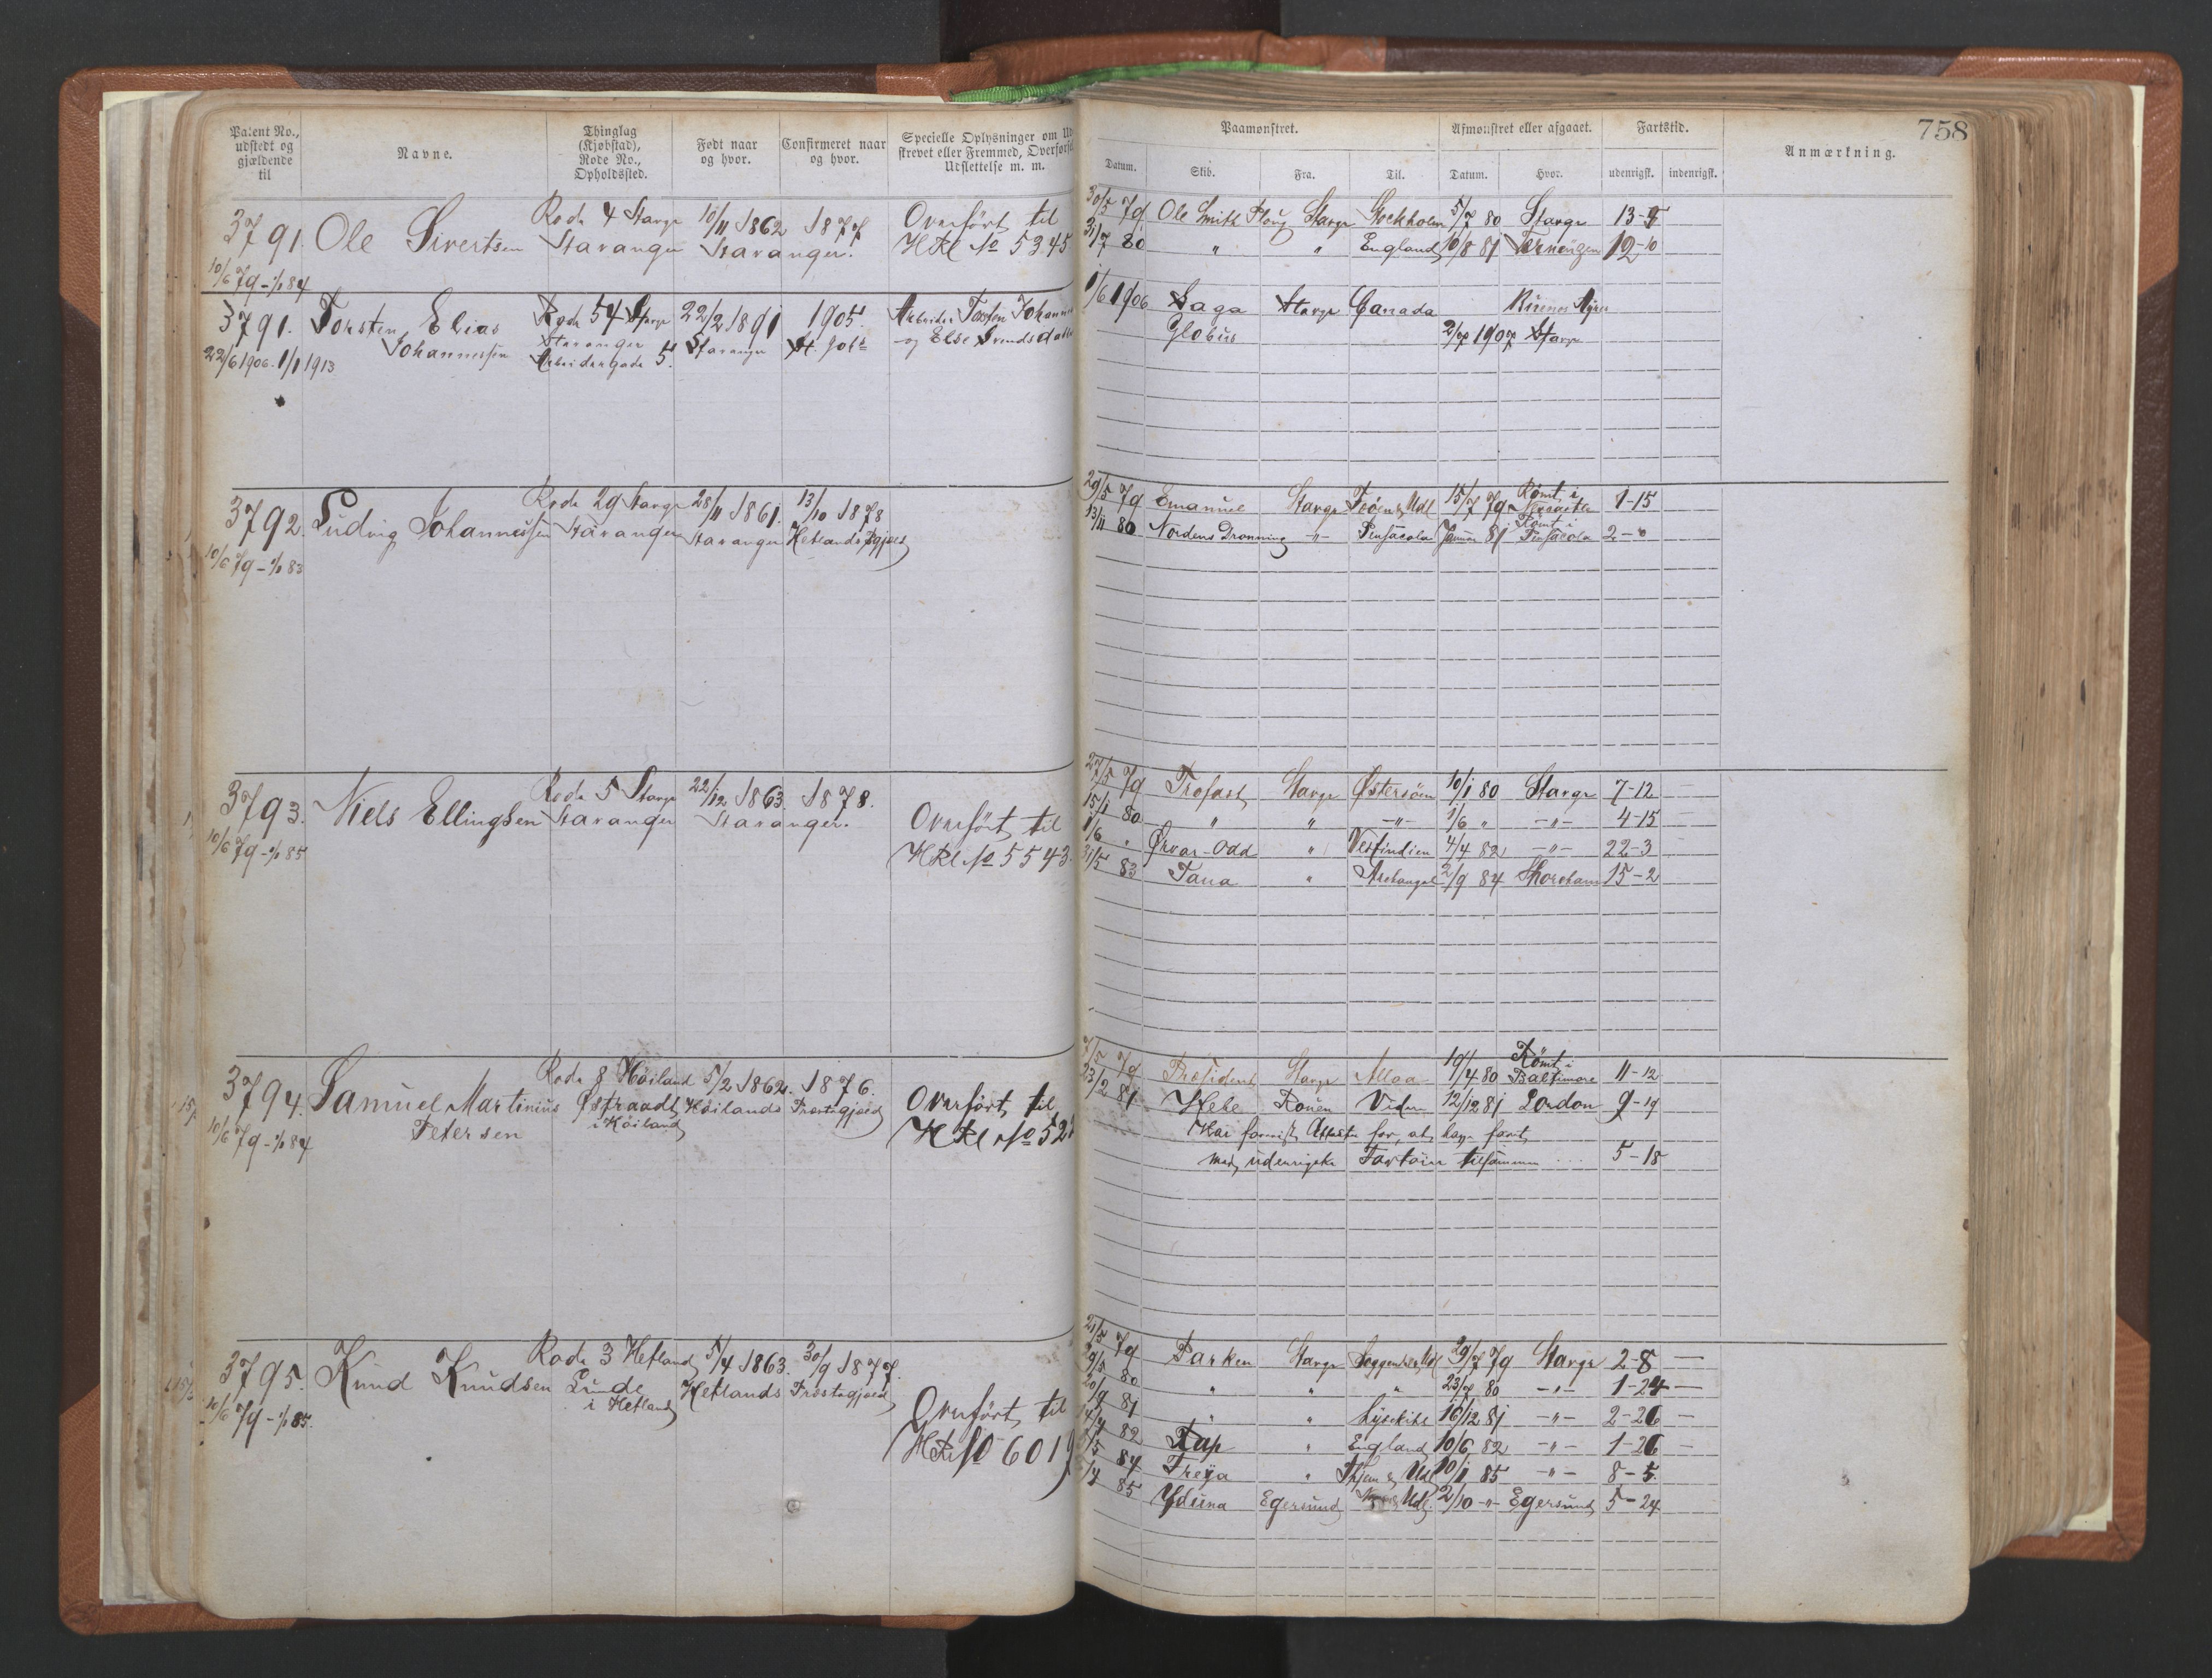 758
Patent No., udstedt og gjældende til
Navne.
Thinglag (Kjøbstad), Rode No., Opholdssted.
Født naar og hvor.
Confirmeret naar og hvor.
Specielle Oplysninger om
skrevet eller Fremmed, Overførsel
Udslettelse m. m.
Paamønstret.
Afmønstret eller afgaaet.
Fartstid.
Anmærkning.
Datum. Skib. Fra. Til. Datum. Hvor. udenrigsk. indenrigsk.
3791. Ole Sivertsen Rode 4 Stavgr 10/11 1862 1877 Overført til
Stavanger Stavanger. HRl No 5345
10/6 79 - 1/1 84
30/5 79 Ole Smith Ploug Stavgr Stockholm 5/7 80 Stavgr 13-5
31/7 80 " " England 10/8 81 Terneuzen 12-10
3791. Torsten Elias Rode 54 Stavgr 22/2 1891 1905. Arbeider Torsten Johann
Johannessen Stavanger Stavanger St. Joh. og Else Svendsdatter
22/6 1906. 1/1 1913 Arbeidergade 5.
1/6 1906 Saga Stavgr Canada Buenos Ayres
Globus 2/7 1907 Stavgr
3792. Ludvig Johannessen Rode 29 Stavgr 28/11 1861. 13/10 1878
Stavanger Stavanger Hetlands Pgjæld
10/6 79 - 1/1 83
29/5 79 Emanuel Stavgr & Udl 15/7 79 Rømt i 1-15
13/11 80 Nordens Dronning -"- Pensacola Januar 81 Rømt i Pensacola 2-0
3793. Niels Ellingsen Rode 5 Stavgr 22/12 1863. 1878.
Stavanger Stavanger. Overført til
10/6 79 - 1/1 85 HRl No 5543.
27/5 79 Trofast Stavgr Østersøen 10/1 80 Stavgr 7-12
15/1 80 " " -"- 1/6 " -"- 4-15
1/6 " Ørvar-Odd " Vestindien 4/4 82 -"- 22-3
31/5 83 Tana " Archangel 2/9 84 Shoreham 15-2
3794. Samuel Martinius Rode 8 Høiland 5/2 1862. 1876.
Petersen Østraadt Høilands Præstegjæld Overført til
i Høiland HRl No 52
10/6 79 - 1/1 84
79 Præsident Stavgr 1/4 80 Rømt i Baltimore 11-12
23/2 81 Hebe Rouen Viden 12/12 81 London 9-19
Har forevist Attester for, at have faret
med udenrigske Fartøier tilsammen ... 5-18
3795. Knud Knudsen Rode 3 Hetland 5/4 1863. 30/9 1877.
Lunde Hetlands Præstegjæld
i Hetland Overført til
10/6 79 - 1/1 85. HRl No 6019
21/5 79 Parken Stavgr & Udl 29/7 79 Stavgr 2-8
29/5 80 " " " 23/7 80 -"- 1-24
20/9 81 " " Lysekihl 16/12 81 -"- 2-26
14/4 82 Rap " England 10/6 82 -"- 1-26
84 Freya " & Udl 10/1 85 -"- 8-5.
85 Yduna Egersund & Udl. 2/10 -"- Egersund 5-24